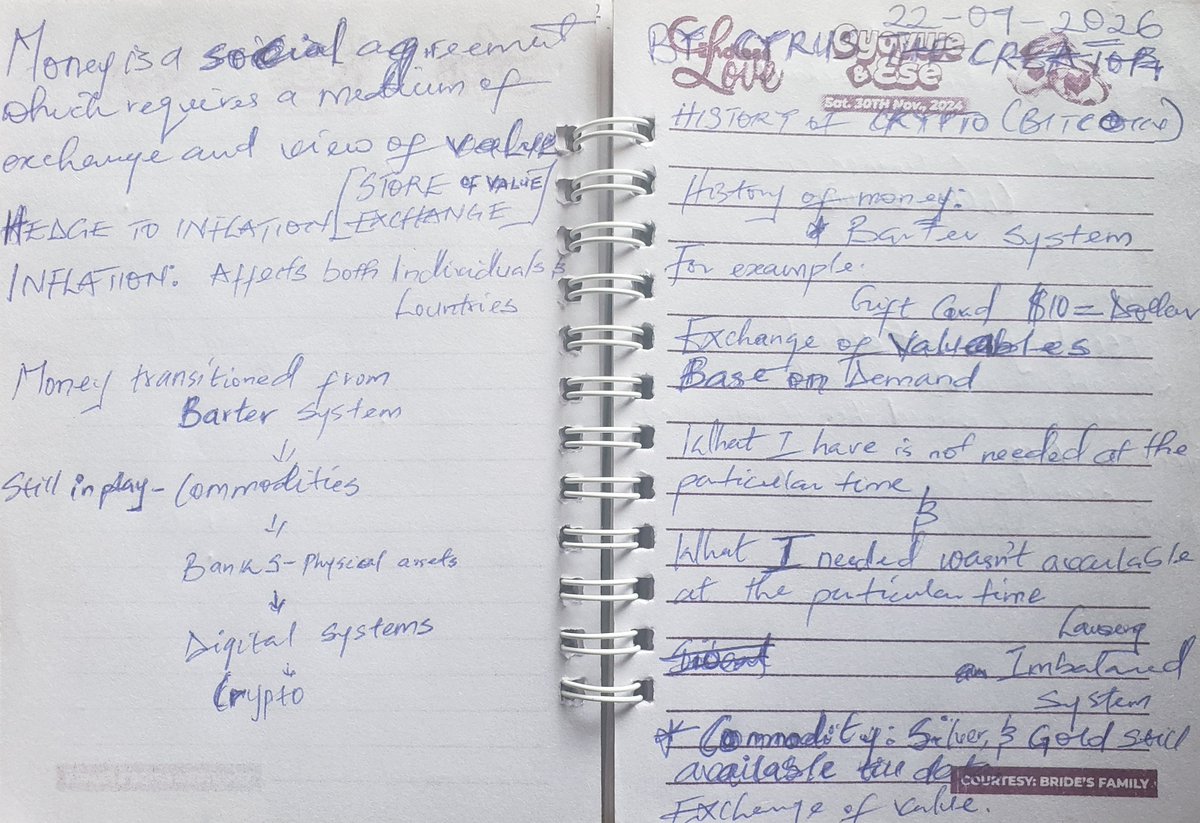 Money is a social agreement
which requires a medium of
exchange and view of value
[STORE OF VALUE]
HEDGE TO INFLATION [EXCHANGE]
INFLATION: Affects both Individuals &
Countries
Money transitioned from
Barter system
↓
Still in play - Commodities
↓
Banks - Physical assets
↓
Digital systems
↓
Crypto
22-09-2026
BY CYRUS THE CREATOR
Love
& Ese
Sat. 30TH Nov., 2024
HISTORY of CRYPTO (BITCOIN)
History of money:
* Barter system
For example:
Gift Card $10 = Dollar
Exchange of Valuables
Base on Demand
What I have is not needed at the
particular time
&
What I needed wasn't available
at the particular time
Causing
an Imbalanced
System
* Commodity: Silver, & Gold still
available till date
COURTESY: BRIDE'S FAMILY
Exchange of value.